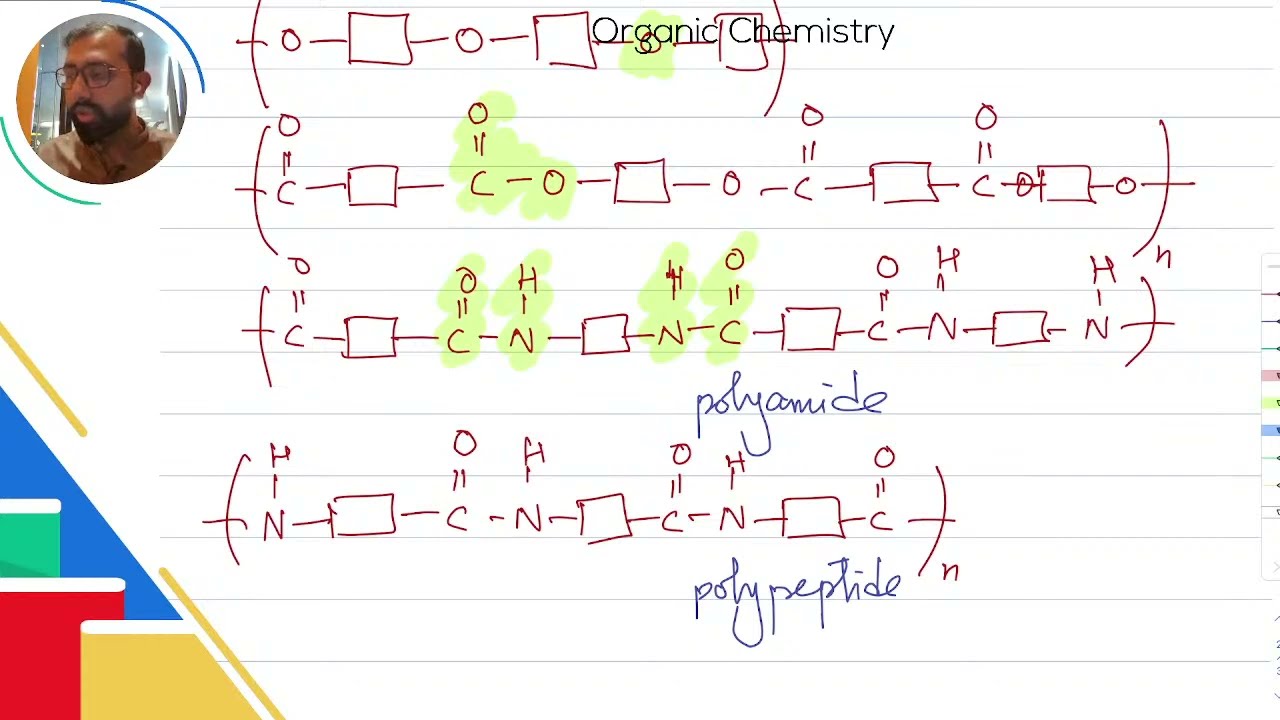 Organic Chemistry
O O O
O O O O
C C O O C C O O
n
O O H H O O H H
C C N N C C N N
polyamide
H O H O H O
N C N C N C
n
polypeptide